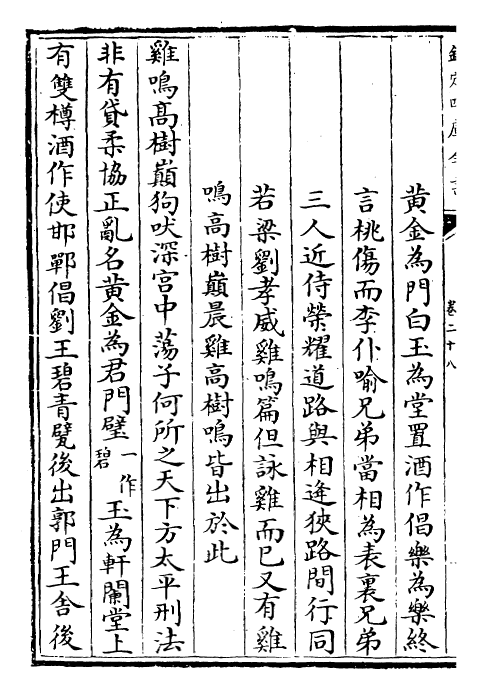 欽定四庫全書
卷二十八
黄金為門白玉為堂置酒作倡樂為樂終
言桃傷而李仆喻兄弟當相為表裏兄弟
三人近侍榮耀道路與相逢狹路間行同
若梁劉孝威雞鳴篇但詠雞而已又有雞
鳴高樹巔晨雞高樹鳴皆出於此
雞鳴高樹巔狗吠深宫中蕩子何所之天下方太平刑法
非有貸柔協正亂名黄金為君門璧一作碧玉為軒闌堂上
有雙樽酒作使邯鄲倡劉王碧青甓後出郭門王舍後